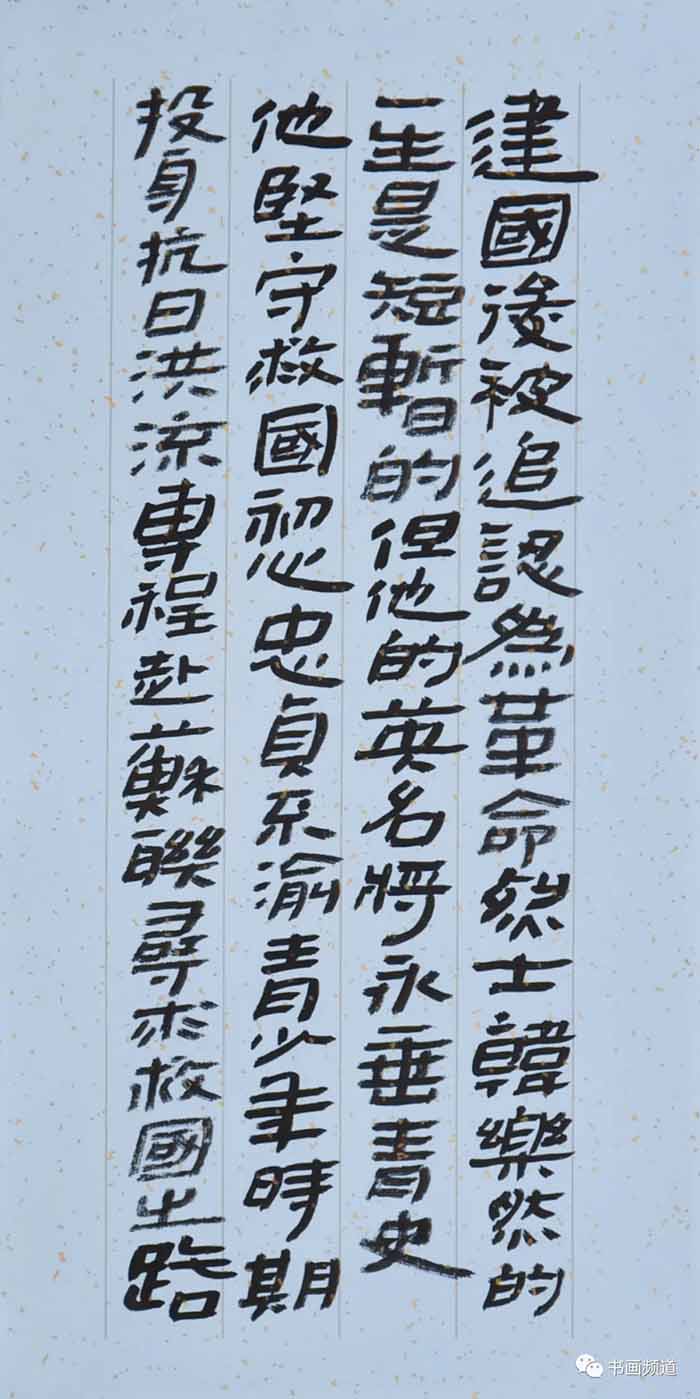 建國後被追認為革命烈士韓樂然的
一生是短暫的但他的英名將永垂青史
他堅守救國初心忠貞不渝青少年時期
投身抗日洪流專程赴蘇聯尋求救國之路
书画频道